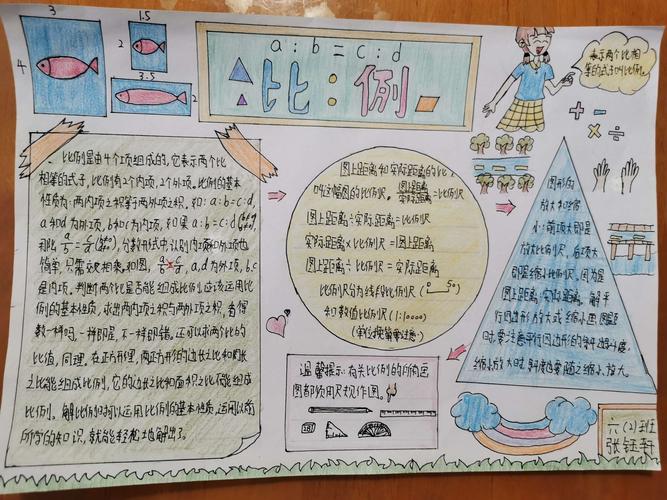 3
4
1.5
2
3.5
2
a:b=c:d
比:例
表示两个比相
等的式子叫比例。
比例是由4个项组成的,它表示两个比
相等的式子,比例有2个内项,2个外项。比例的基本
性质为:两内项之积等于两外项之积。如:a:b=c:d,
a和d为外项,b和c为内项,如果a:b=c:d
那么 a/b=c/d
简单,只需交叉相乘。如图, a,d为外项,b,c
是内项。判断两个比是否能组成比例,应该运用比
例的基本性质,求出两内项之积与两外项之积,看得
数一样吗,一样即是,不一样即错。还可以求两个比的
比值,同理。在正方形里,两正方形的边长之比和周长
之比能组成比例,它的边长之比和面积之比不能组成
比例。解比例时可以运用比例的基本性质,运用以前
所学的知识,就能轻松地解出了。
图上距离和实际距离的比,
叫这幅图的比例尺。图上距离/实际距离=比例尺
图上距离:实际距离=比例尺
实际距离×比例尺=图上距离
图上距离÷比例尺=实际距离
比例尺分为线段比例尺(0 50)
和数值比例尺(1:10000)
(单位换算需注意)
+ − × ÷
图形的
放大和缩
小:前项大即是
放大比例尺,后项大
即是缩小比例尺,因为是
图上距离:实际距离。解平
行四边形放大或缩小画图题
时,要注意平行四边形的
缩小放大时,斜度也要随之缩小,放大。
温馨提示:有关比例的所有画
图都须用尺规作图。
六(2)班
张钰轩